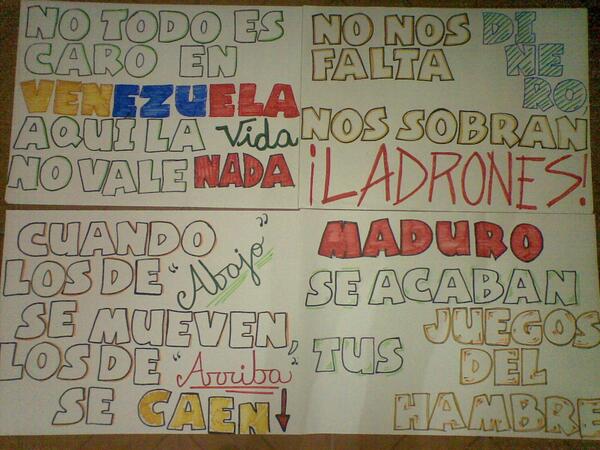 NO TODO ES
CARO EN
VENEZUELA
AQUI LA Vida
NO VALE NADA
NO NOS
FALTA DINERO
NOS SOBRAN
¡LADRONES!
CUANDO
LOS DE "Abajo"
SE MUEVEN,
LOS DE "Arriba"
SE CAEN
MADURO
SE ACABAN
TUS JUEGOS
DEL
HAMBRE